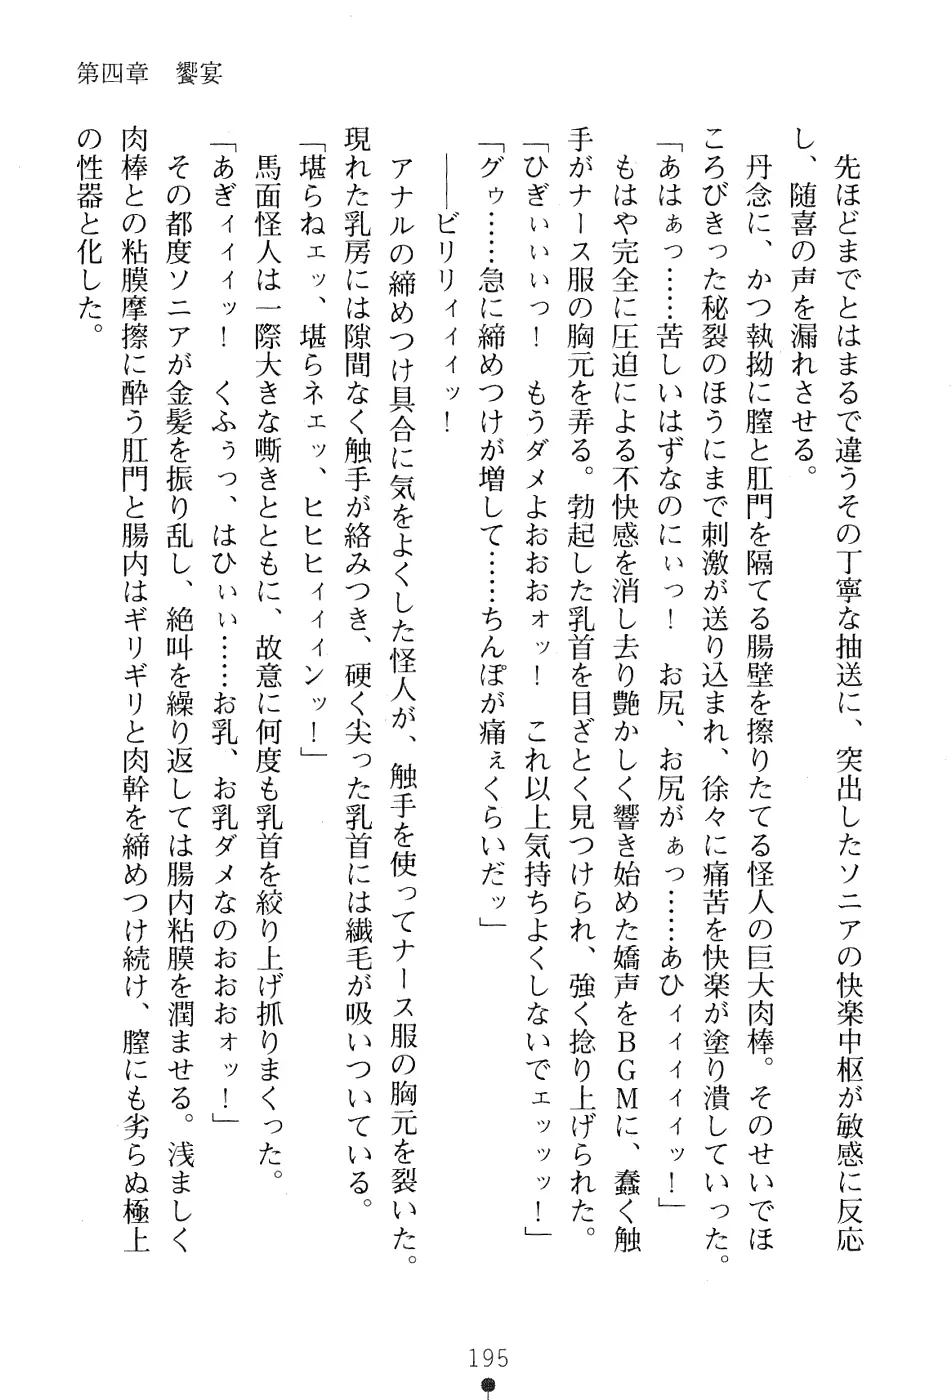 第四章　饗宴
　先ほどまでとはまるで違うその丁寧な抽送に、突出したソニアの快楽中枢が敏感に反応
し、随喜の声を漏れさせる。
　丹念に、かつ執拗に膣と肛門を隔てる腸壁を擦りたてる怪人の巨大肉棒。そのせいでほ
ころびきった秘裂のほうにまで刺激が送り込まれ、徐々に痛苦を快楽が塗り潰していった。
「あはぁっ……苦しいはずなのにぃっ！　お尻、お尻がぁっ……あひィィィィッ！」
　もはや完全に圧迫による不快感を消し去り艶かしく響き始めた嬌声をＢＧＭに、蠢く触
手がナース服の胸元を弄る。勃起した乳首を目ざとく見つけられ、強く捻り上げられた。
「ひぎぃぃぃっ！　もうダメよおおおォッ！　これ以上気持ちよくしないでェッッッ！」
「グゥ……急に締めつけが増して……ちんぽが痛ぇくらいだッ」
　――ビリリィィィッ！
　アナルの締めつけ具合に気をよくした怪人が、触手を使ってナース服の胸元を裂いた。
現れた乳房には隙間なく触手が絡みつき、硬く尖った乳首には繊毛が吸いついている。
「堪らねェッ、堪らネェッ、ヒヒヒィィィンッ！」
　馬面怪人は一際大きな嘶きとともに、故意に何度も乳首を絞り上げ抓りまくった。
「あぎィィィッ！　くふぅっ、はひぃぃ……お乳、お乳ダメなのおおおォッ！」
　その都度ソニアが金髪を振り乱し、絶叫を繰り返しては腸内粘膜を潤ませる。浅ましく
肉棒との粘膜摩擦に酔う肛門と腸内はギリギリと肉幹を締めつけ続け、膣にも劣らぬ極上
の性器と化した。
195